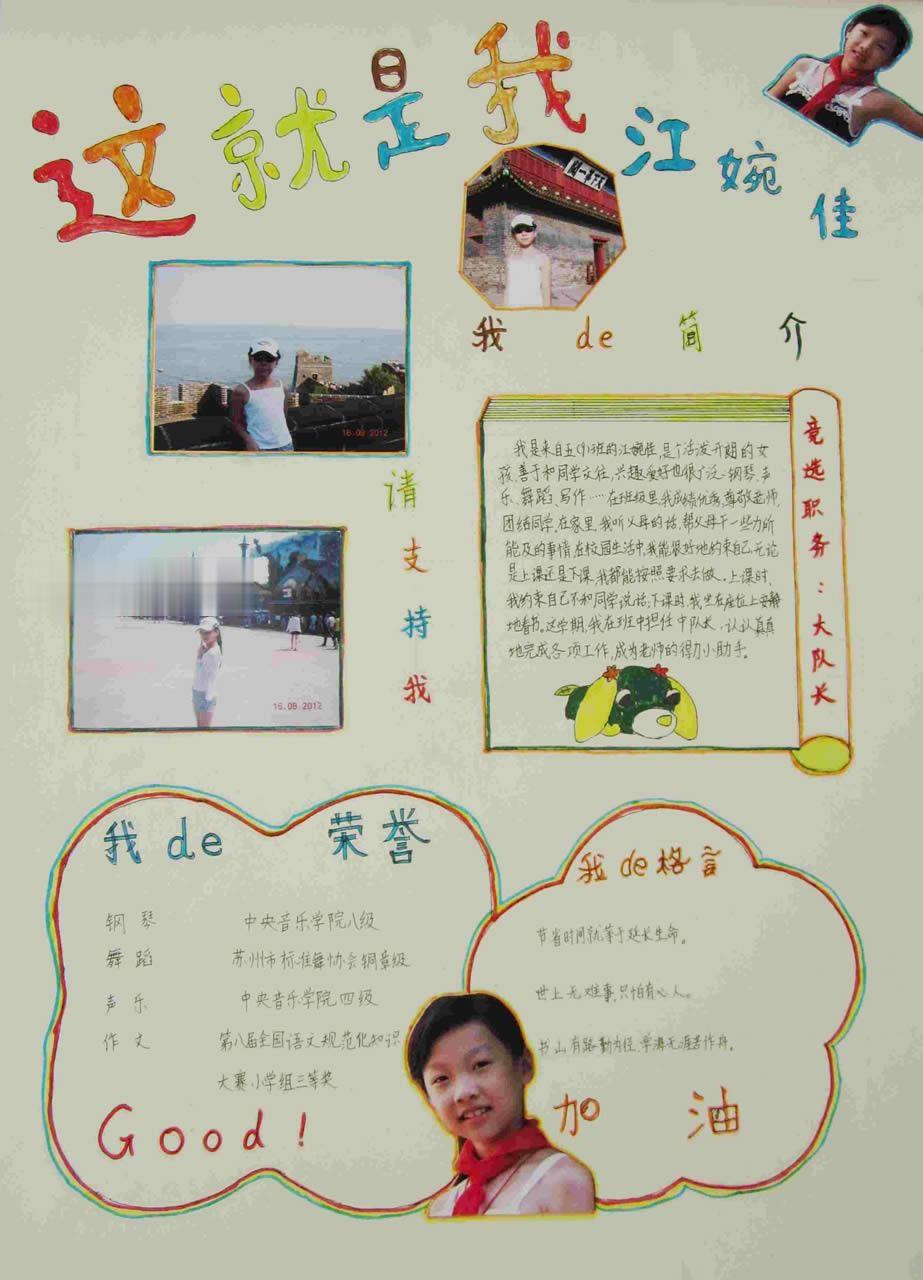 这就是我
江婉佳
天下第一关
我 de 简介
16.09.2012
请支持我
16.08.2012
我是来自五(9)班的江婉佳,是个活泼开朗的女
孩,善于和同学交往,兴趣爱好也很广泛:钢琴、声
乐、舞蹈、写作……在班级里,我成绩优秀,尊敬老师,
团结同学。在家里,我听父母的话,帮父母干一些力所
能及的事情,在校园生活中,我能很好地约束自己,无论
是上课还是下课,我都能按照要求去做。上课时,
我约束自己不和同学说话;下课时,我坐在座位上安静
地看书。这学期,我在班中担任中队长,认认真真
地完成各项工作,成为老师的得力小助手。
竞选职务:大队长
我 de 荣誉
钢琴 中央音乐学院八级
舞蹈 苏州市标准舞协会铜章级
声乐 中央音乐学院四级
作文 第八届全国语文规范化知识
大赛小学组三等奖
Good!
我 de 格言
节省时间就等于延长生命。
世上无难事,只怕有心人。
书山有路勤为径,学海无涯苦作舟。
加油